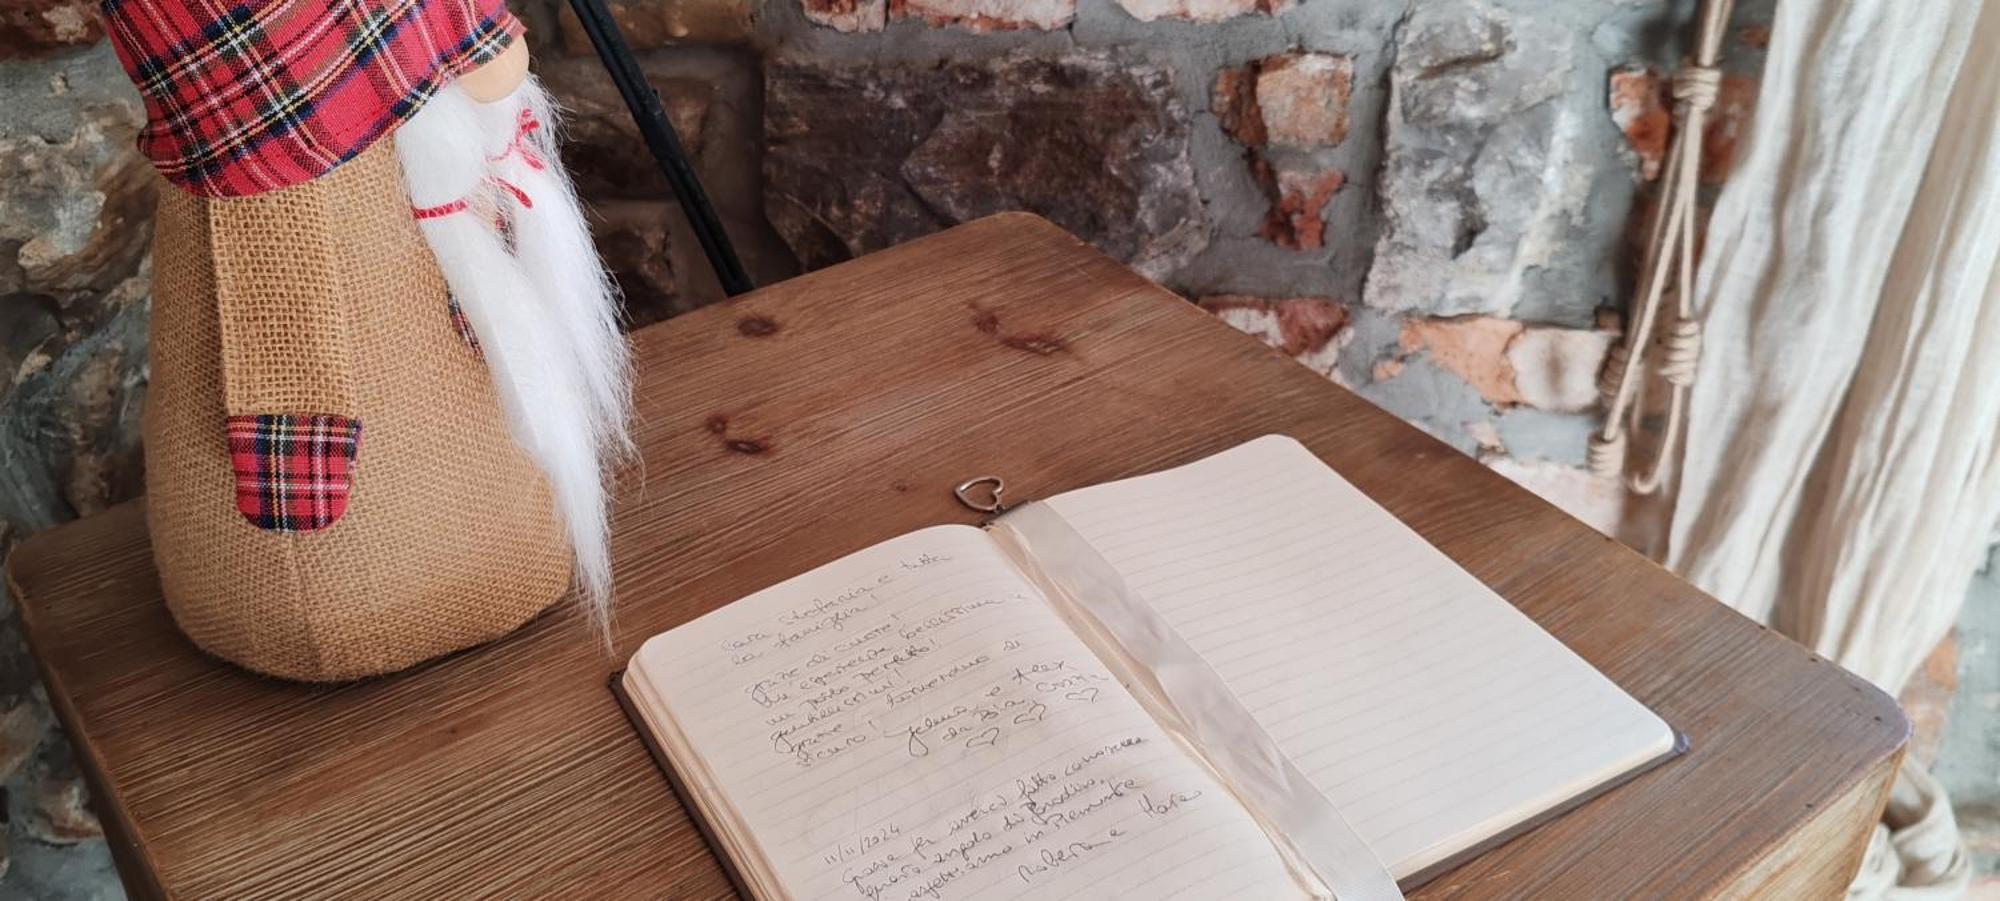 Cara Stefania e tutta
la famiglia!
Grazie di cuore!
Un'esperienza bellissima e
un posto perfetto!
gentilissimi!
Grazie! Torneremo di
sicuro! Jelena e Alex
da Bia
11/11/2024
Grazie per averci fatto conoscere
questo angolo di Paradiso,
aspettiamo in Piemonte
Roberta e Marco